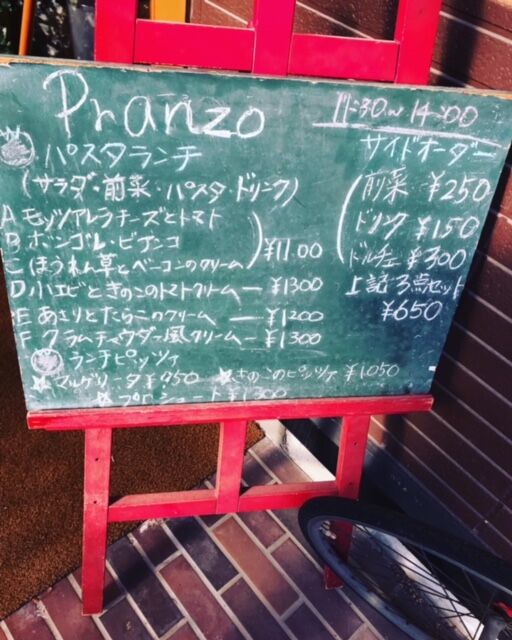 Pranzo
11:30~14:00
パスタランチ
(サラダ・前菜・パスタ・ドリンク)
A モッツアレラチーズとトマト
B ボンゴレ・ビアンコ
C ほうれん草とベーコンのクリーム
¥11.00
D 小エビときのこのトマトクリーム ー ¥1300
E あさりとたらこのクリーム ー ¥1200
F クラムチャウダー風クリーム ー ¥1300
ランチピッツァ
☆マルゲリータ ¥950 ☆きのこのピッツァ ¥1050
☆プロシュート ¥1300
サイドオーダー
前菜 ¥250
ドリンク ¥150
ドルチェ ¥300
上記3点セット
¥650